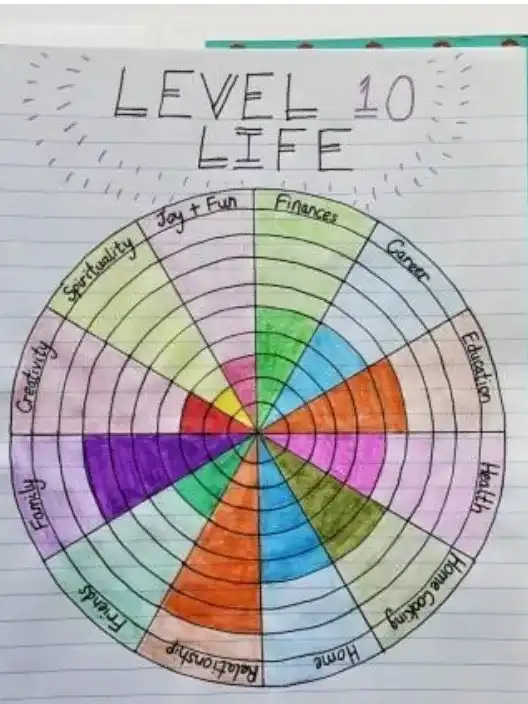 LEVEL 10
LIFE
Joy + Fun
Finances
Career
Education
Health
Home Cooking
Home
Relationship
Friends
Family
Creativity
Spirituality